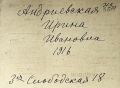 Андриевская
Ирина
Ивановна
1916
3ая Слободская 18